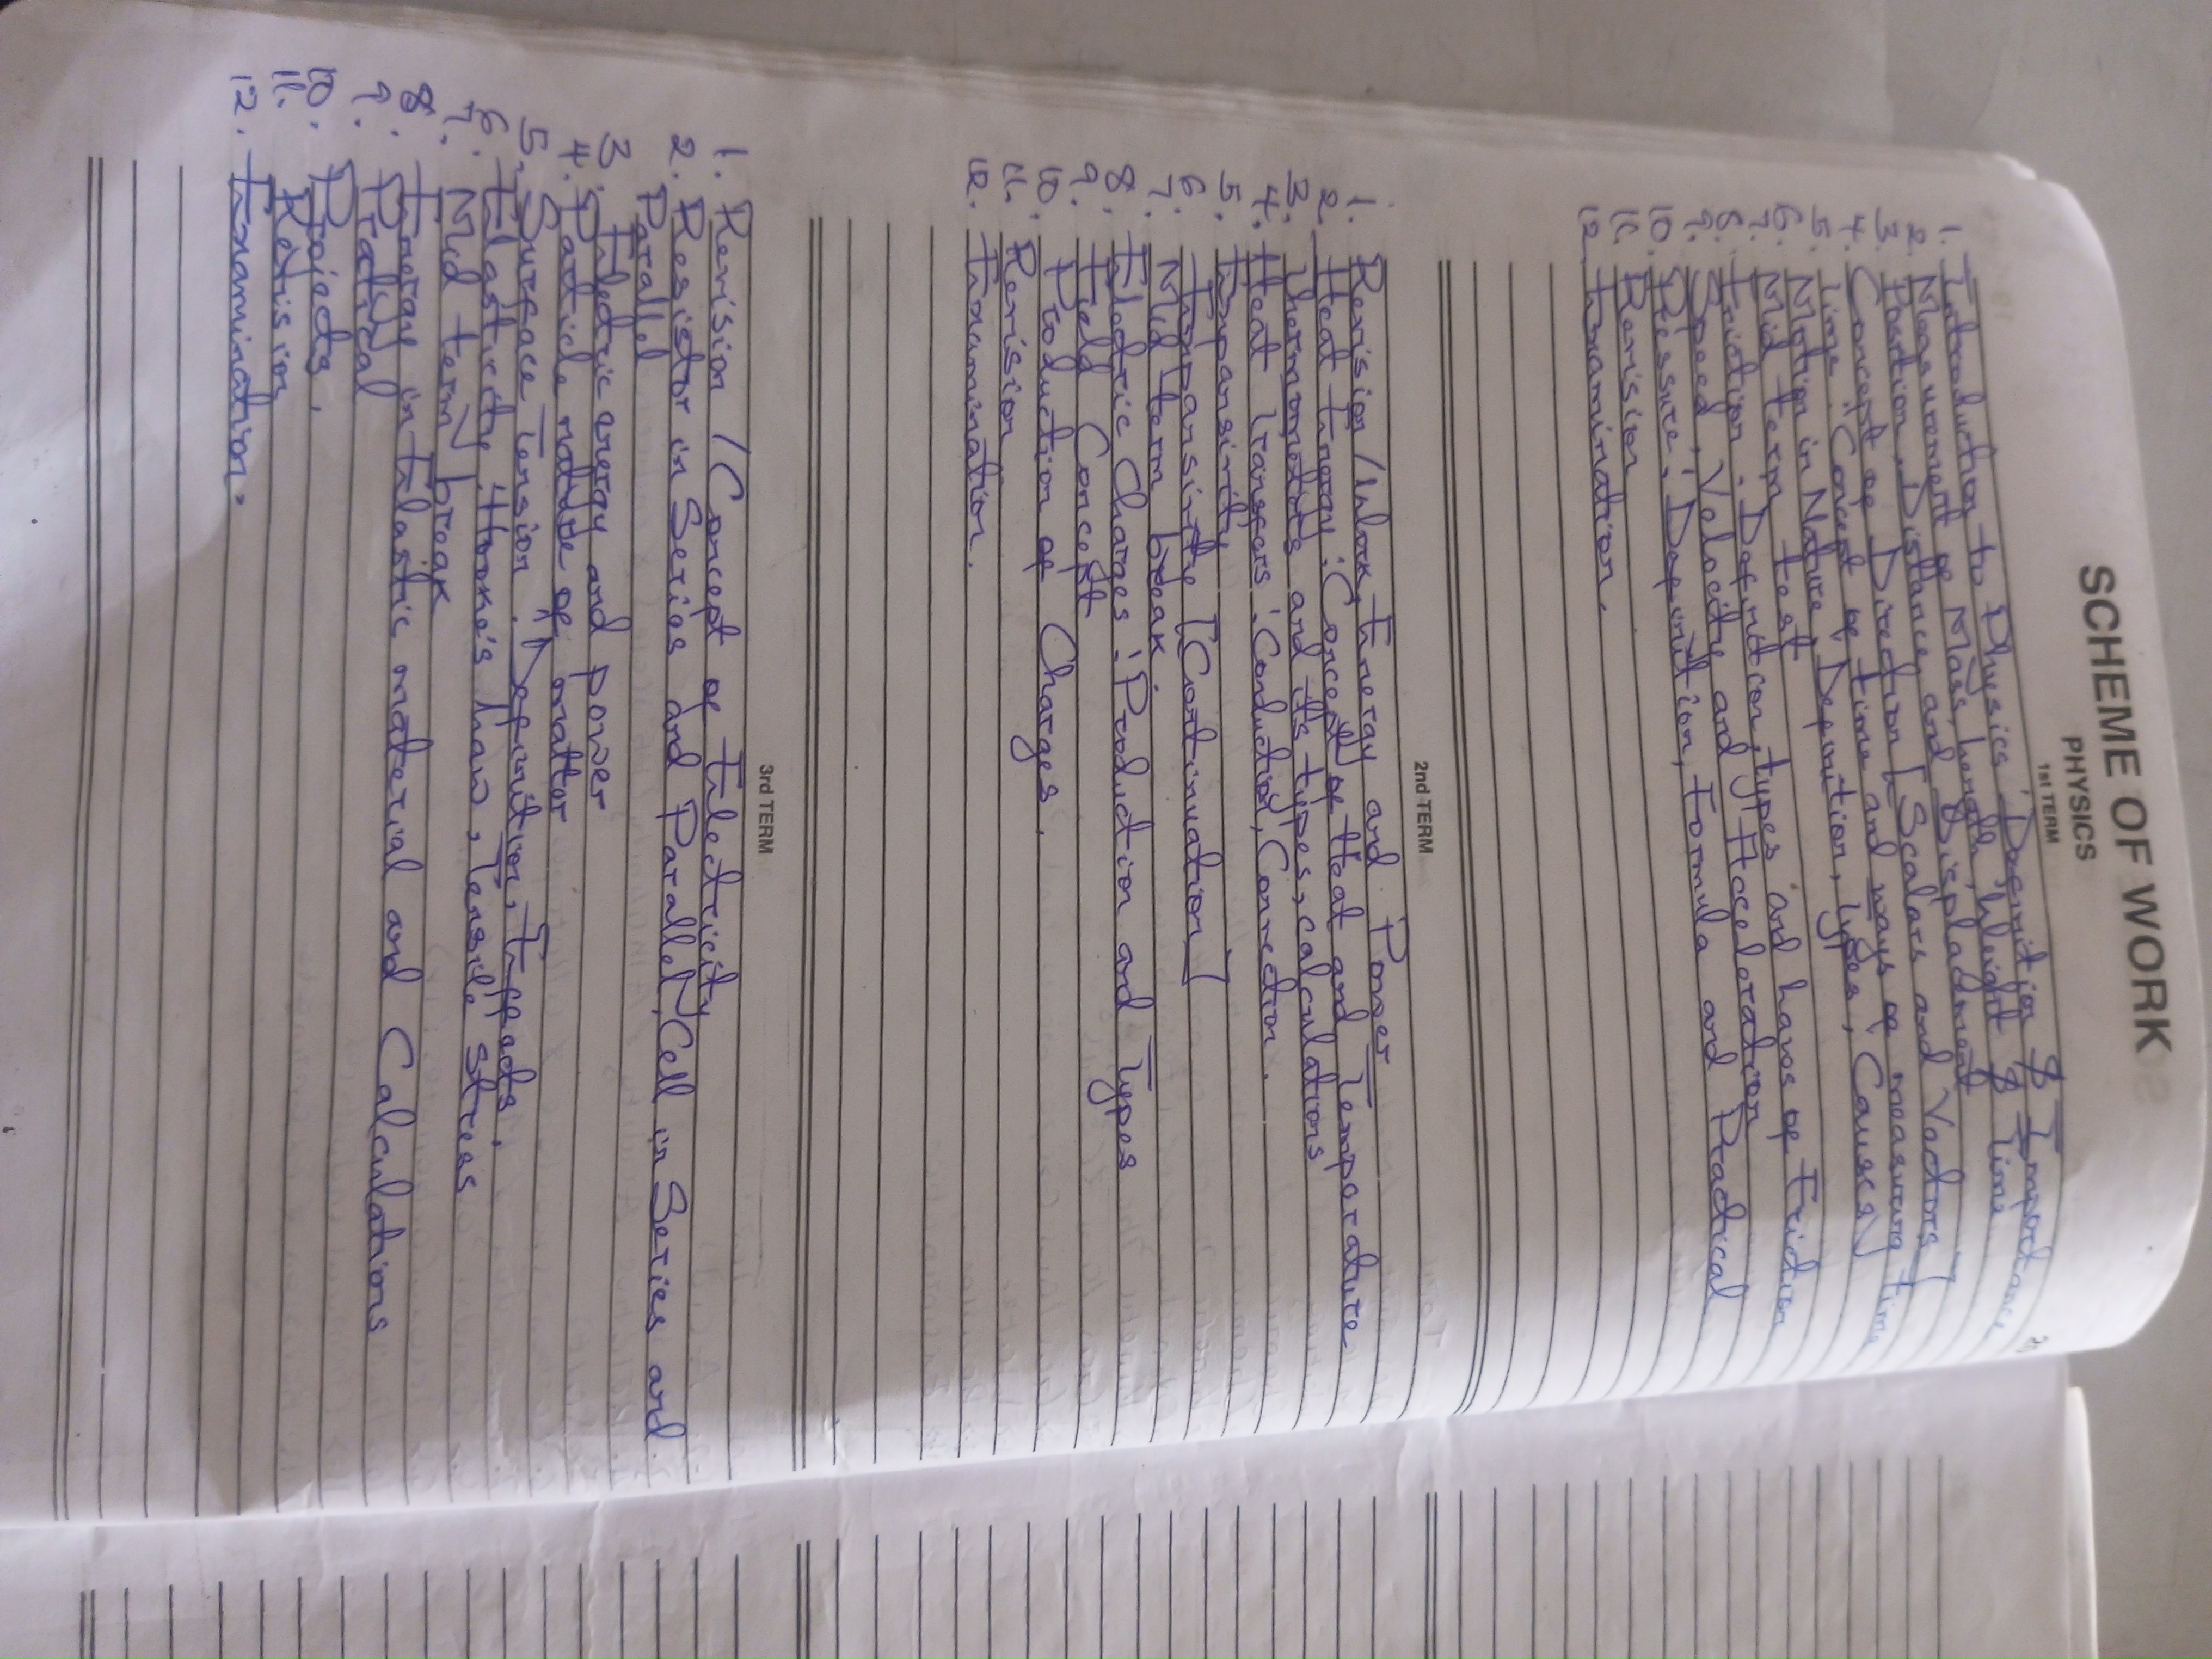 SCHEME OF WORK
PHYSICS
1st TERM
1. Introduction to Physics, Definition & Importance
2. Measurement of Mass, Length, Weight & Time
3. Position, Distance, and Displacment
4. Concept of Direction [Scalars and Vectors]
5. Time: Concept of time and ways of measuring Time
6. Motion in Nature, Definition, Types, Causes
7. Mid term test
8. Friction. Definition, types and laws of Friction
9. Speed, Velocity and Acceleration
10. Pressure, Definition, Formula and Practical
11. Revision
12. Examination.
2nd TERM
1. Revision / Work, Energy and Power
2. Heat Energy: Concept of Heat and Temperature
3. Thermometers and its types, calculations
4. Heat Transfers: Conduction, Convection.
5. Expansivity
6. Expansivity [Continuation]
7. Mid term break
8. Electric Charges: Production and Types
9. Field Concept
10. Production of Charges.
11. Revision
12. Examination.
3rd TERM
1. Revision / Concept of Electricity
2. Resistor in Series and Parallel, Cell in Series and
Parallel
3. Electric energy and power
4. Particle nature of matter
5. Surface Tension. Definition, Effects.
6. Elasticity, Hooke's Law, Tensile Stress
7. Mid term break
8. Energy in Elastic material and Calculations
9. Pratical
10. Projects.
11. Revision
12. Examination.